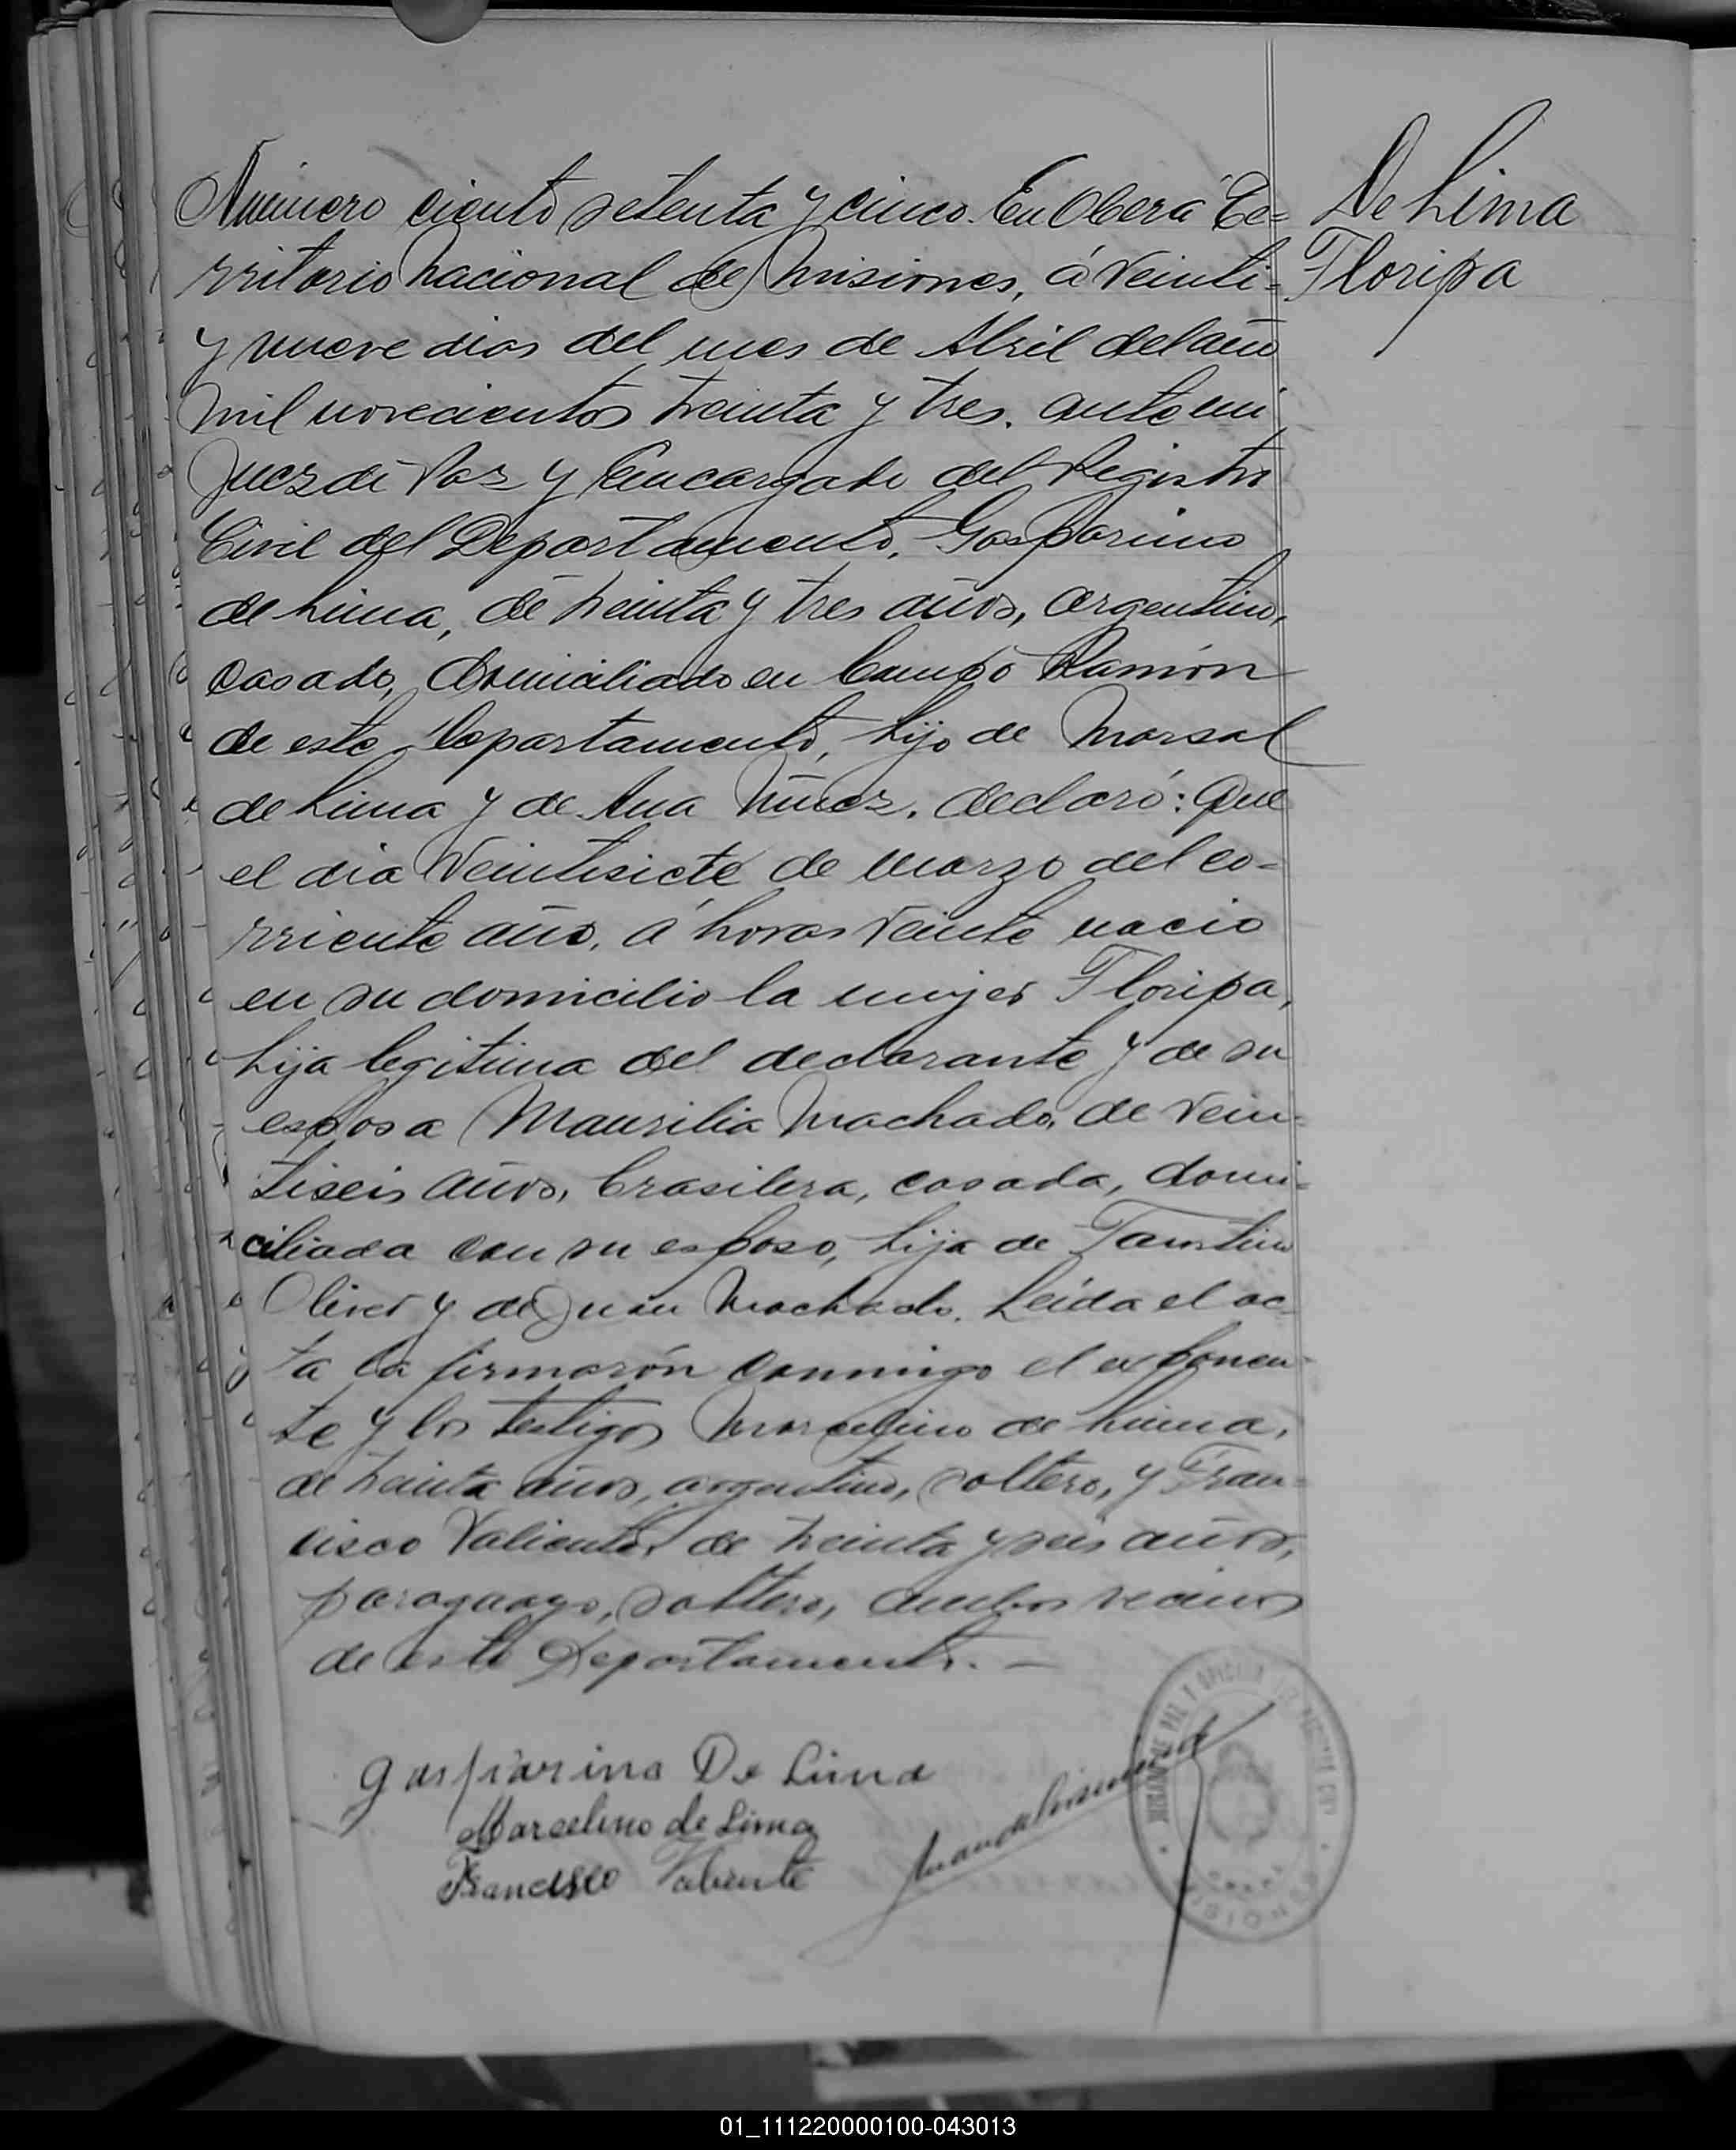 Numero ciento setenta y cinco. En Oberá Te=
rritorio Nacional de Misiones, á veinti=
y nueve dias del mes de Abril del año
mil novecientos treinta y tres. ante mi
Juez de Paz y Encargado del Registro
Civil del Departamento, Gasparino
de Lima, de treinta y tres años, argentino,
casado, domiciliado en Campo Ramón
de este Departamento, hijo de Marsal
de Lima y de Ana Núñez. declaró: Que
el dia veintisiete de marzo del co=
rriente año, á horas veinte nacio
en su domicilio la mujer Floripa,
hija legitima del declarante y de su
esposa Maurilia Machado, de vein=
tiseis años, brasilera, casada, domi=
ciliada con su esposo, hija de
Oliver y de Machado. Leida el ac=
ta la firmarón conmigo el exponen=
te y los testigos Marcelino de Lima,
de treinta años, argentino, soltero, y Fran=
cisco Valiente, de treinta y seis años,
paraguayo, soltero, ambos vecinos
de este Departamento. —
De Lima
Floripa
Gasparino De Lima
Marcelino de Lima
Francisco Valiente
JUZGADO DE PAZ Y
MISIONES
01_111220000100-043013